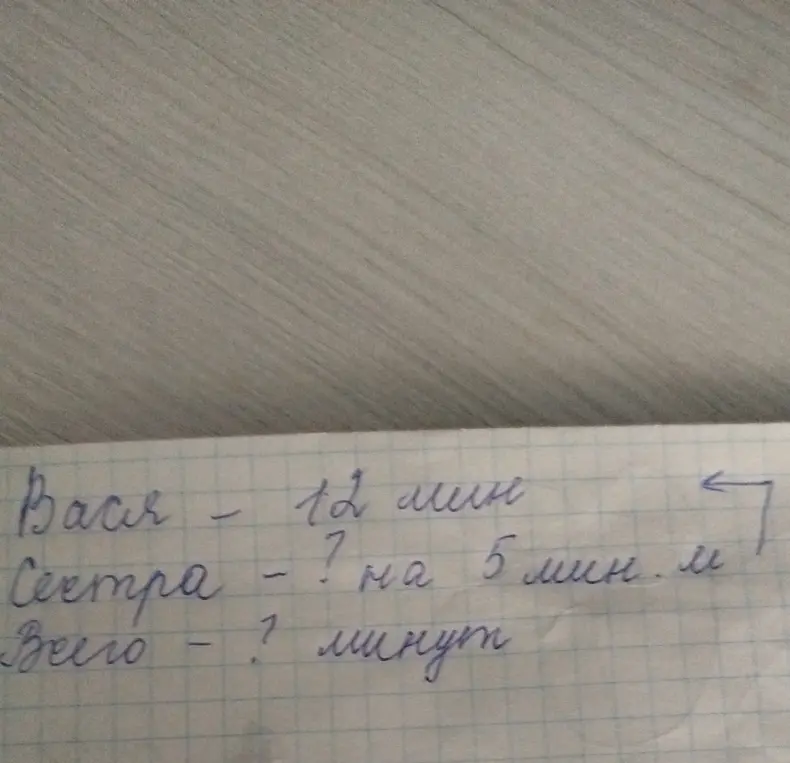 Вася - 12 мин
Сестра - ? на 5 мин. м
Всего - ? минут